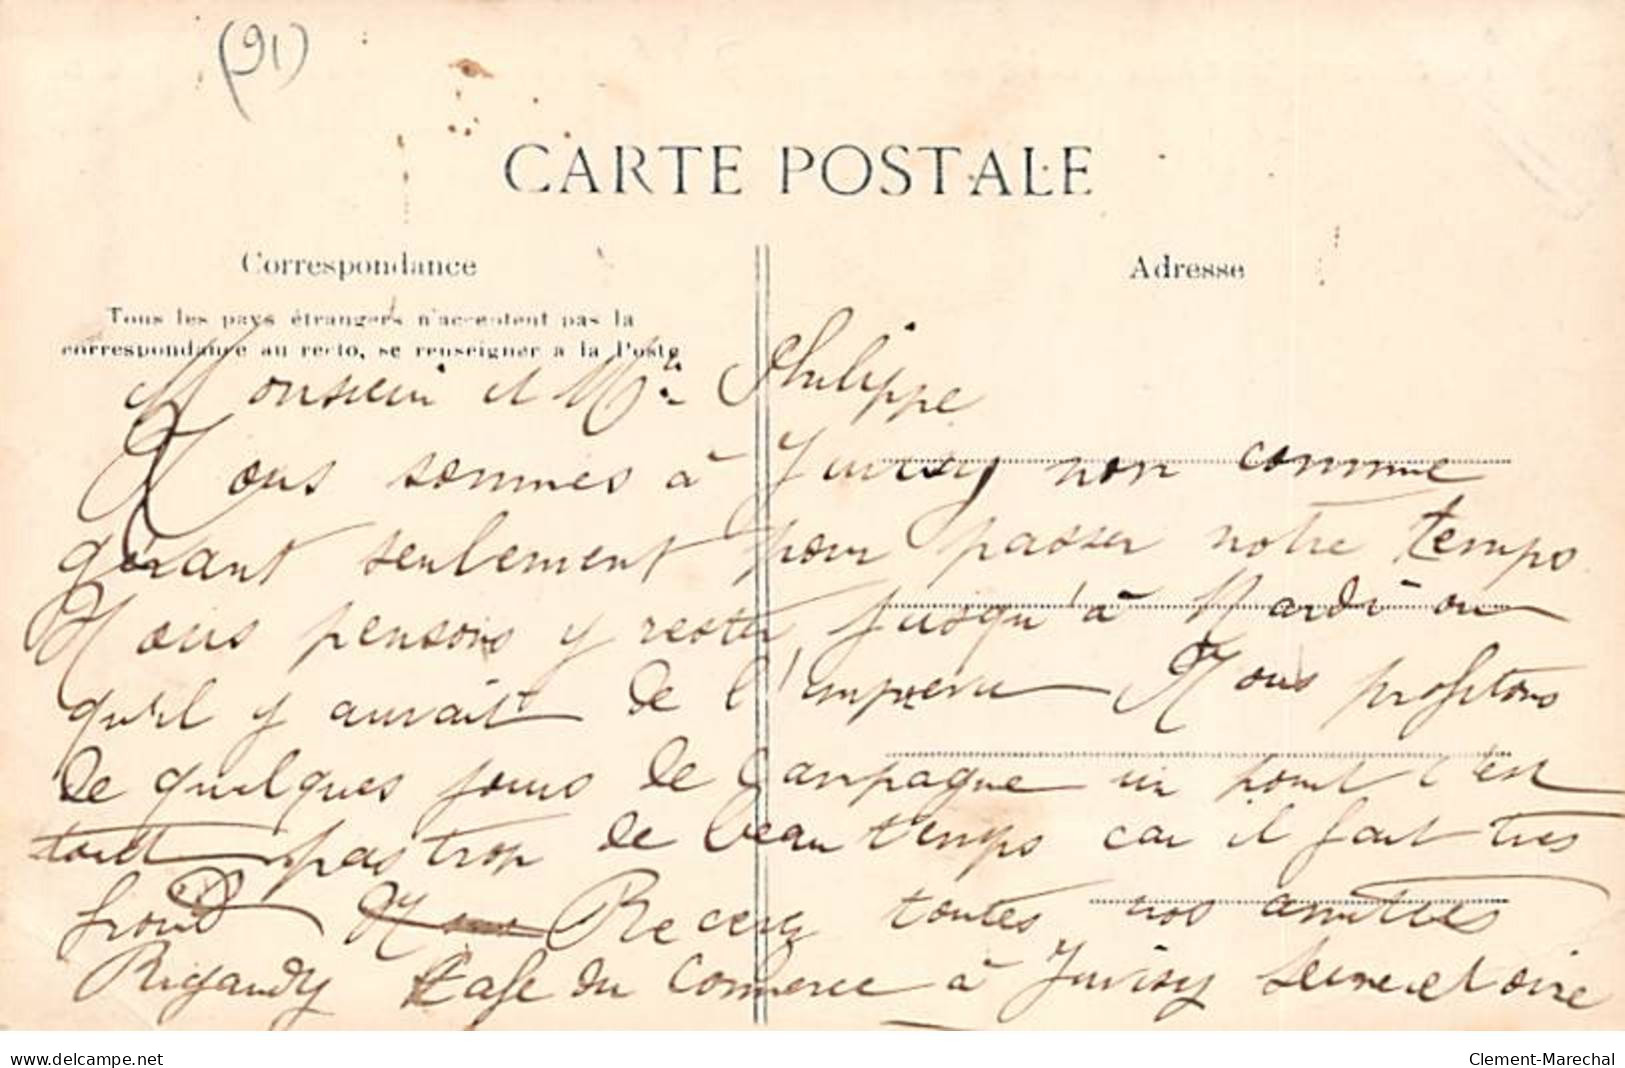 (91)
CARTE POSTALE
Correspondance
Adresse
Tous les pays étrangers n'acceptent pas la
correspondance au recto, se renseigner à la Poste
Monsieur et Mme Philippe
Nous sommes à Juvisy non comme
gérant seulement pour passer notre temps
Nous pensons y rester jusqu'à Mardi ou
qu'il y aurait de l'imprevu Nous profitons
de quelques jours de Campagne un point c'est
tout pas trop de beau temps car il fait tres
froid Nous Recevez toutes nos amitiés
Rigaudy Cafe du Commerce à Juvisy Seine et Oise
www.delcampe.net
Clement-Marechal